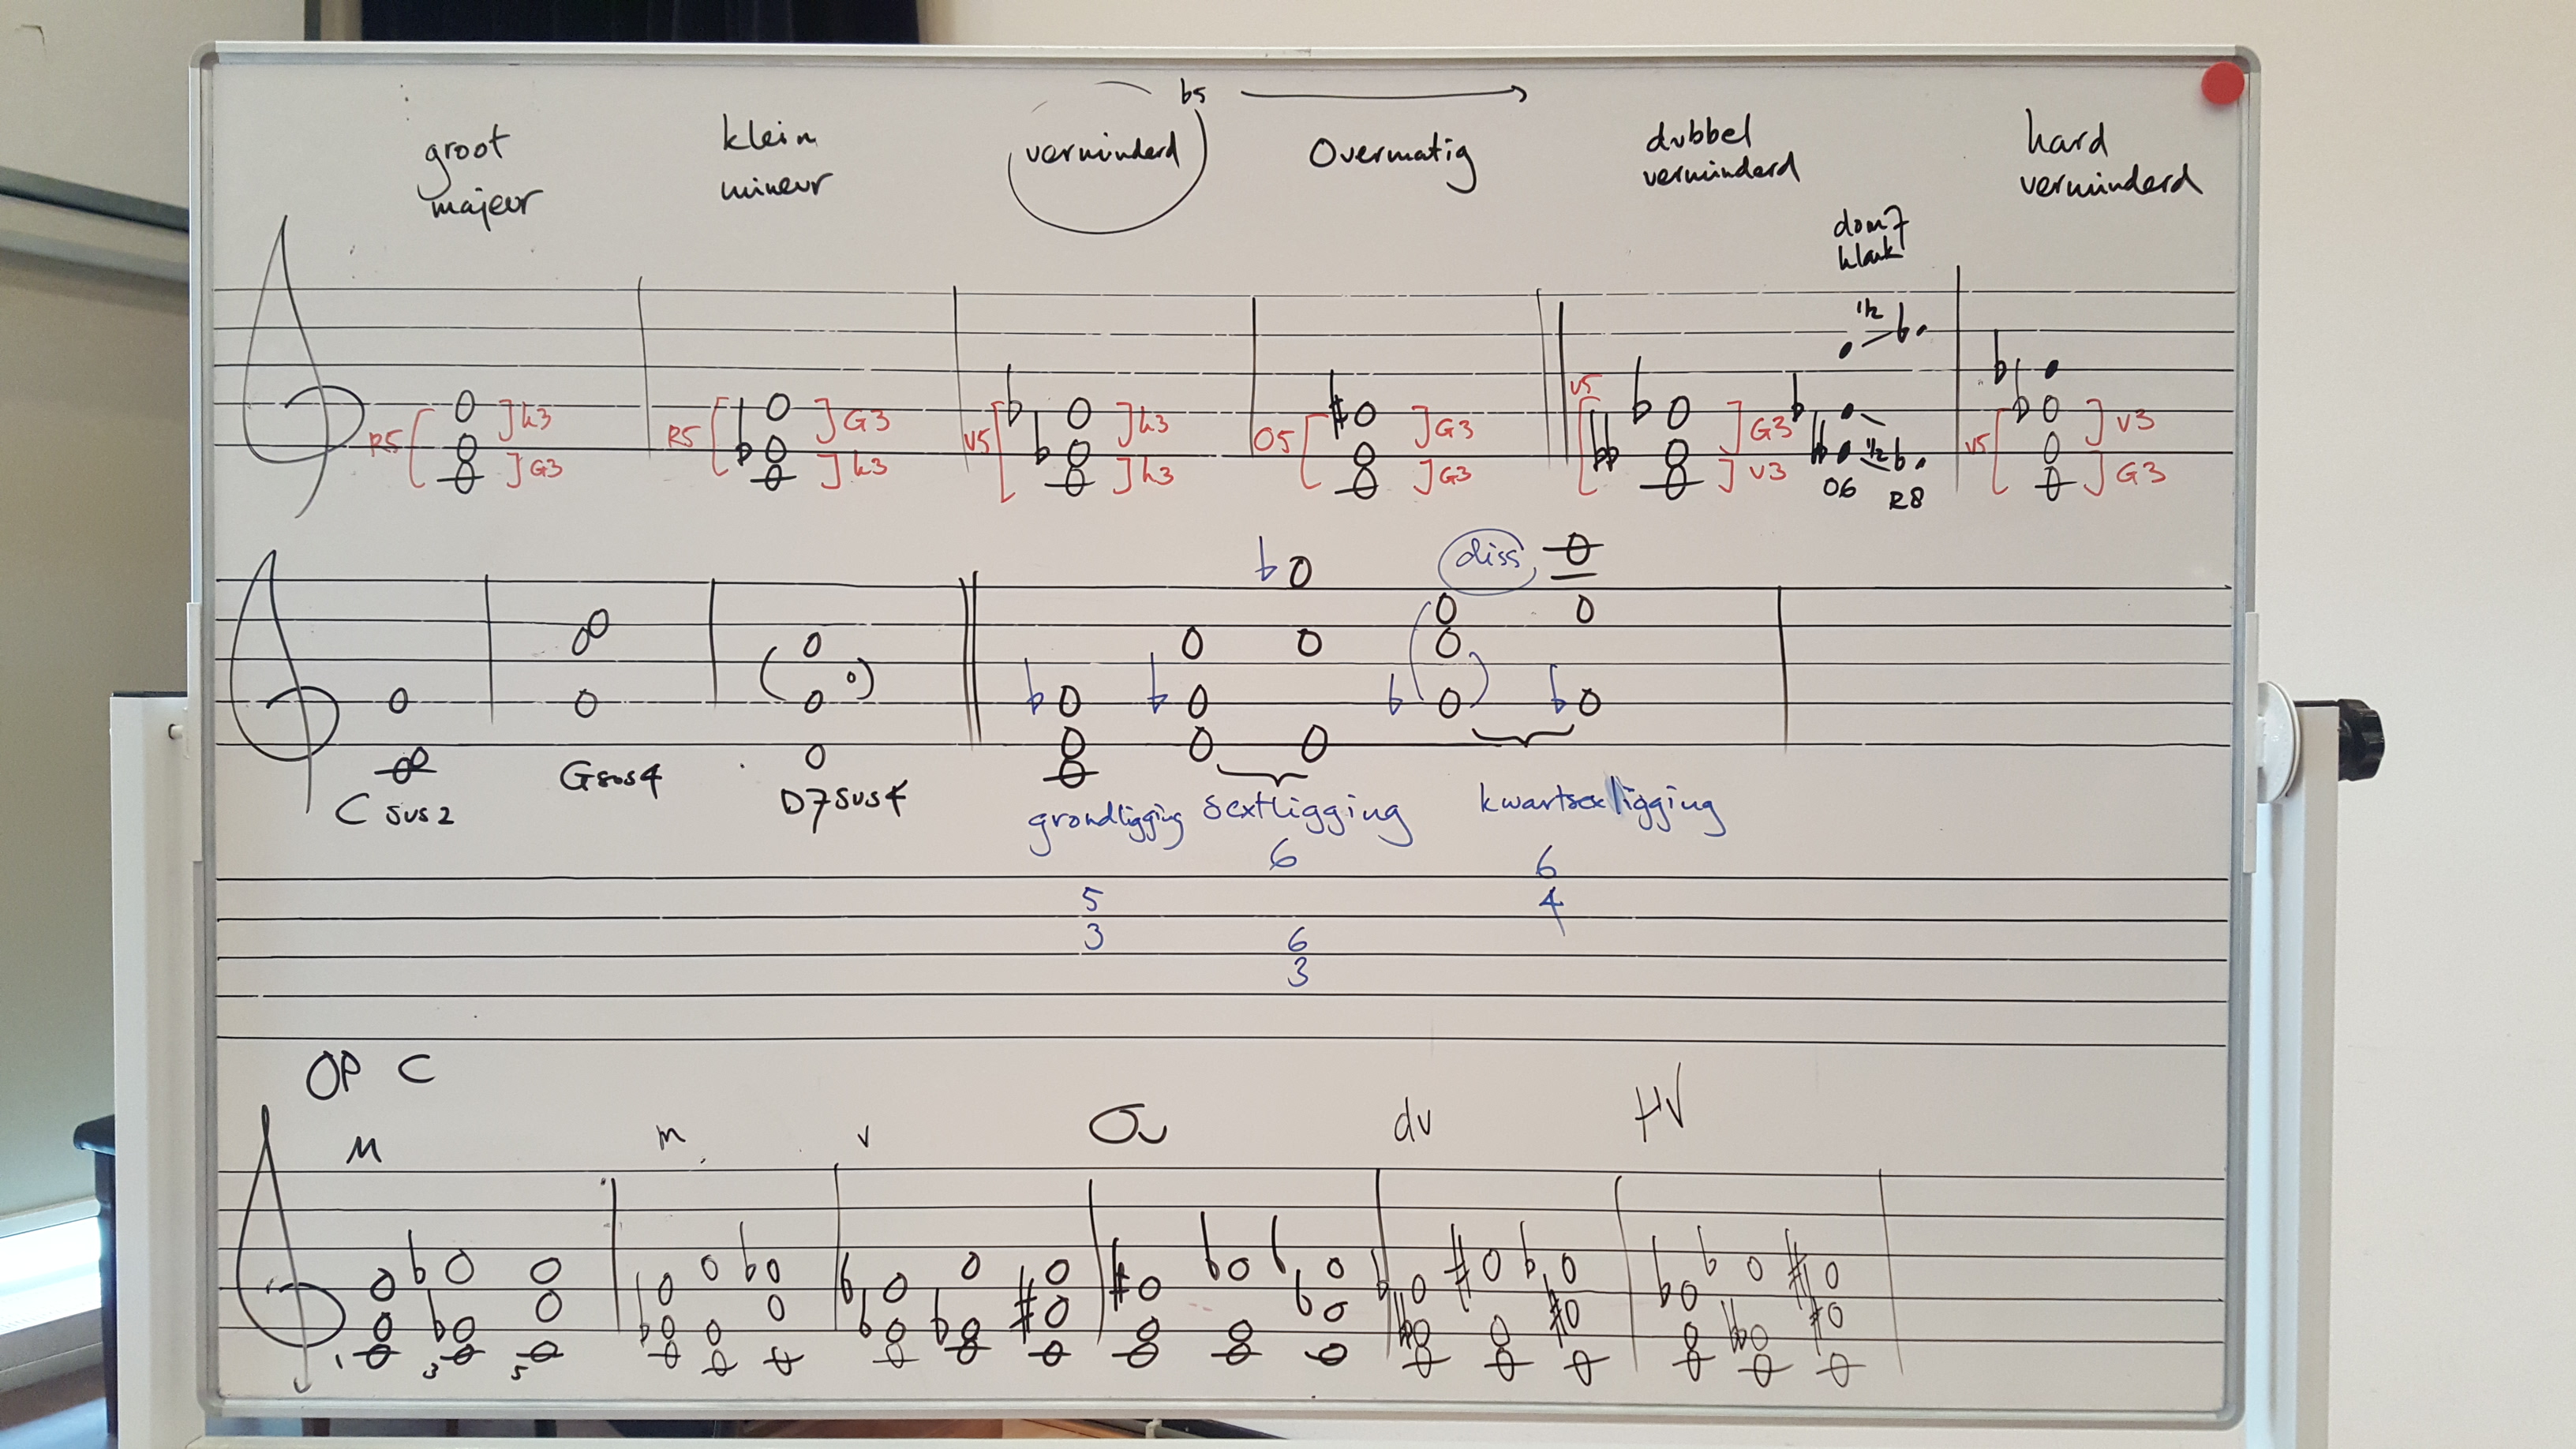 b5
groot
majeur
klein
mineur
verminderd
Overmatig
dubbel
verminderd
hard
verminderd
dom7
klank
1/2
R5
k3
G3
R5
G3
k3
V5
k3
k3
O5
G3
G3
V5
G3
V3
1/2
O6
R8
V5
V3
G3
diss.
C sus2
Gsus4
D7sus4
grondligging
sextligging
kwartsextligging
6
6
5
4
3
6
3
OP C
M
m
v
Ov
dv
HV
1
3
5